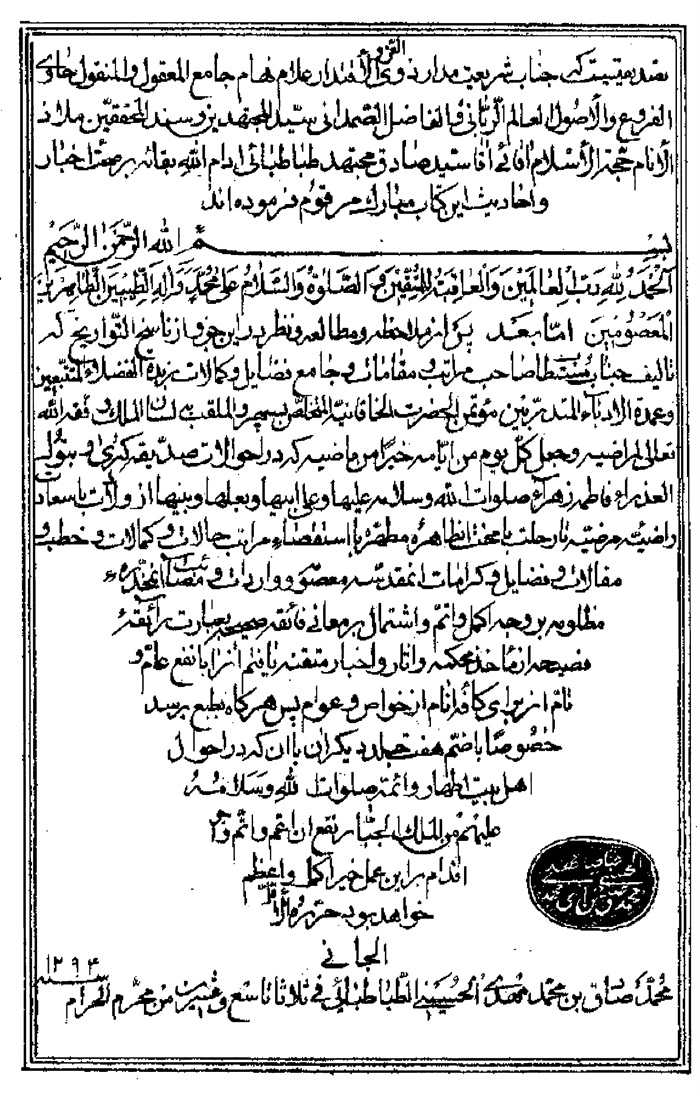 جناب شریعت مدار ذوی العز و الاقتدار علام فهام جامع المعقول والمنقول حاوی
الفروع والاصول العالم الربانی والفاضل الصمدانی سید المجتهدین و سند المحققین ملاذ
الانام حجة الاسلام آقائی آقا سید صادق مجتهد طباطبائی ادام الله بقائه بر صحت اخبار
و احادیث این کتاب مبارک مرقوم فرموده اند
بسم الله الرحمن الرحیم
الحمد لله رب العالمین والعاقبة للمتقین و الصلوة والسلام علی محمد و اله الطیبین الطاهرین
المعصومین اما بعد پس از ملاحظه و مطالعه و نظر در این جزو از ناسخ التواریخ که
تالیف جناب صاحب مراتب و مقامات و جامع فضایل و کمالات زبدة الفضلاء المتتبعین
وعمدة الادباء المتدربین مؤتمن الحضرت الخاقانیه المتخلص بسپهر والملقب بلسان الملک وفقه الله
تعالی لمراضیه وجعل کل یوم من ایامه خیرا من ماضیه که در احوالات صدیقه کبری و بتول
العذراء فاطمه زهراء صلوات الله وسلامه علیها وعلی ابیها وبعلها وبنیها از ولادت باسعادت
راضیه مرضیه تا رحلت با استقصاء مراتب حالات و کمالات و خطب و
مقالات و فضایل و کرامات انمقدسه معصومه و واردات و مصائب انمخدره
مظلومه بر وجه اکمل واتم واشتمال بر معانی فائقه صحیحه بعبارت رائقه
فصیحه از مآخذ محکمه واثار واخبار متقنه یافتم انرا با نفع عام و
تام از برای کافه انام از خواص و عوام پس هرگاه بطبع برسد
خصوصا باضم هفت جلد دیگر ان باان که در احوال
اهل بیت اطهار وائمه صلوات الله وسلامه
علیهم من الملک الجبار نفع ان اعم واتم و
اقدام بر این عمل خیر اکمل واعظم
خواهد بود حرره الاقل
الجانی
محمد صادق بن محمد مهدی الحسینی الطباطبائی فی ثلاثا تاسع وعشرین من محرم الحرام
سنه ۱۲۹۴